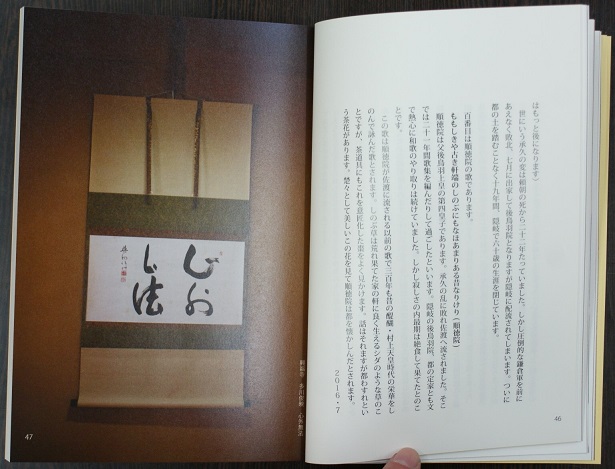 はもっと後になります）
世にいう承久の変は頼朝の死から二十二年たっていました。しかし圧倒的な鎌倉軍を前に
あえなく敗北、七月に出家して後鳥羽院となりますが隠岐に配流されてしまいます。ついに
都の土を踏むことなく十九年間、隠岐で六十歳の生涯を閉じています。
百番目は順徳院の歌であります。
ももしきや古き軒端のしのぶにもなほあまりある昔なりけり（順徳院）
順徳院は父後鳥羽上皇の第四皇子であります。承久の乱に敗れ佐渡へ流されました。そこ
では二十一年間歌集を編んだりして過ごしたといいます。隠岐の後鳥羽院、都の定家とも文
で熱心に和歌のやり取りは続けていました。しかし寂しさの内最期は絶食して果てたとのこ
とです。
この歌は順徳院が佐渡に流される以前の歌で三百年も昔の醍醐・村上天皇時代の栄華をし
のんで詠んだ歌とされます。しのぶ草は荒れ果てた家の軒に良く生えるシダのような草のこ
とですが、茶道具にもこれを意匠化した事をよく見かけます。話はそれますが都わすれとい
う茶花があります。楚々として美しいこの花を見て順徳院は都を懐かしんだとされます。
２０１６・７
46
心外
無法
47